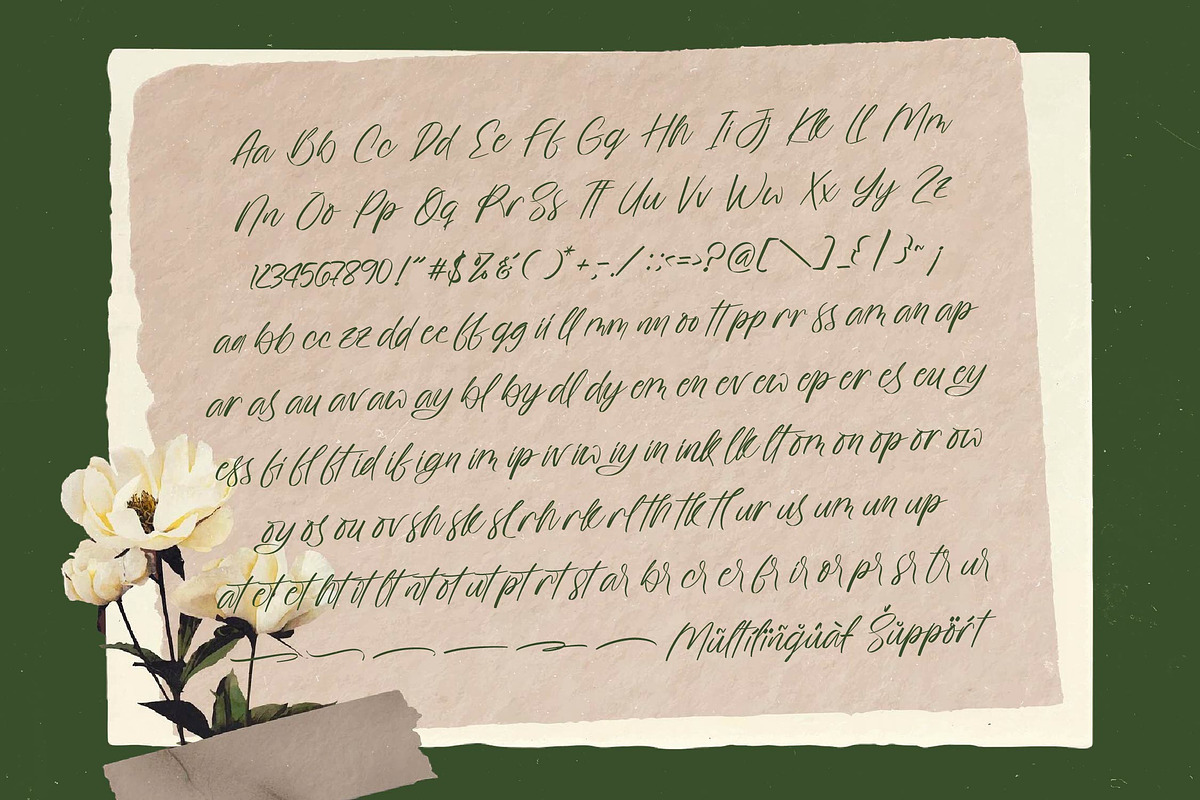 Aa Bb Cc Dd Ee Ff Gg Hh Ii Jj Kk Ll Mm
Nn Oo Pp Qq Rr Ss Tt Uu Vv Ww Xx Yy Zz
1234567890!"#$%&'()*+,-./:;<=>?@[\]_{|}~¡
aa bb cc zz dd ee ff gg ii ll mm nn oo tt pp rr ss am an ap
ar as au av aw ay bl by dl dy em en ev ew ep er es eu ey
ess fi fl ft id if ign im ip iv iw iy in ink lk lt om on op or ow
oy os ou ov sh sk sl rh rk rl th tk tl ur us um un up
at el et ht it lt nt ot ut pt rt st ar br cr er fr ir or pr sr tr ur
Mũltílïñğûàł Šŭppöřt